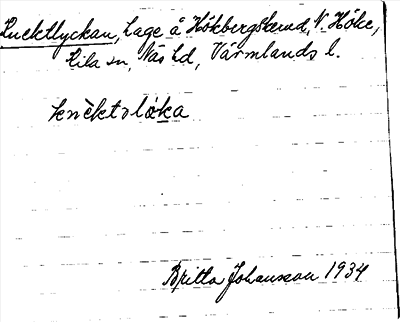 Knektlyckan, hage å Hökbergskerud, N. Höke,
Kila sn, Näs hd, Värmlands l.
knèktslɵka
Britta Johansson 1934